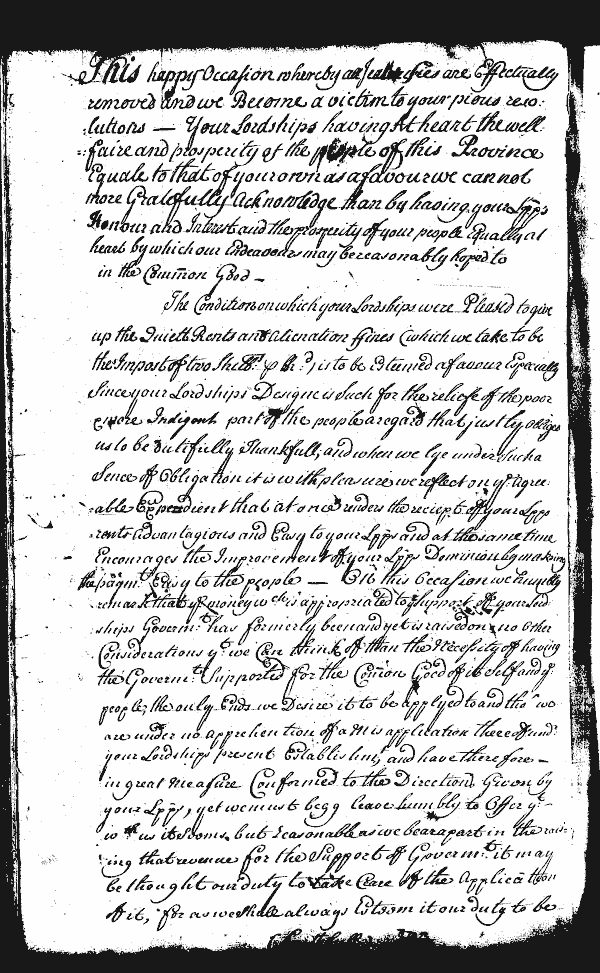 This happy Occasion whereby all Jealousies are Effectually
removed and we Become a victim to your pious reso:
:lutions — Your Lordships having At heart the well
:faire and prosperity of the people of this Province
Equale to that of your own as a favour we cannot
more Gratefully Acknowledge than by having your Lpps
Honour and Interest and the prosperity of your people Equally at
heart by which our Endeavours may be reasonably hoped to
in the Common Good —
The Condition on which your Lordships were Pleased to give
up the Quiett Rents and Alienation ffines (which we take to be
the Impost of two Shill:gs ⅌ hd), is to be Esteemed a favour Especially
Since your Lordships Designe is Such for the reliefe of the poor
more Indigent part of the people a regard that justly obliges
us to be dutifully Thankfull, and when we lye under such a
Sence of Obligation it is with pleasure we reflect on ye. Agree:
:able Expendient that at once renders the reciept of your Lpps
rents Advantagious and Easy to your Lpps and at the same time
Encourages the Improvement of your Lpps Dominion by making
the paymt. Easy to the people — On this Occasion we humbly
remark that ye money wch is appropriated to ye Support of your Lord
ships Governmt. has formerly been and yet is raised on no Other
Considerations yt. we Can think of than the Necessity of having
the Governmt. Supported for the Comon Good of it Self and ye
people, the only Ends we Desire it to be applyed to and tho' we
are under no apprehention of a Misapplication thereof undr.
your Lordships present Establishmt, and have therefore —
in great Measure Conformed to the Directions Given by
your Lpps, yet we must begg leave humbly to Offer yt. —
to us it Seems but reasonable as we bear a part in the rais:
:ing that revenue for the Support of Governmt. it may
be thought our duty to take Care of the Application
of it, for as we shall always Esteem it our duty to be